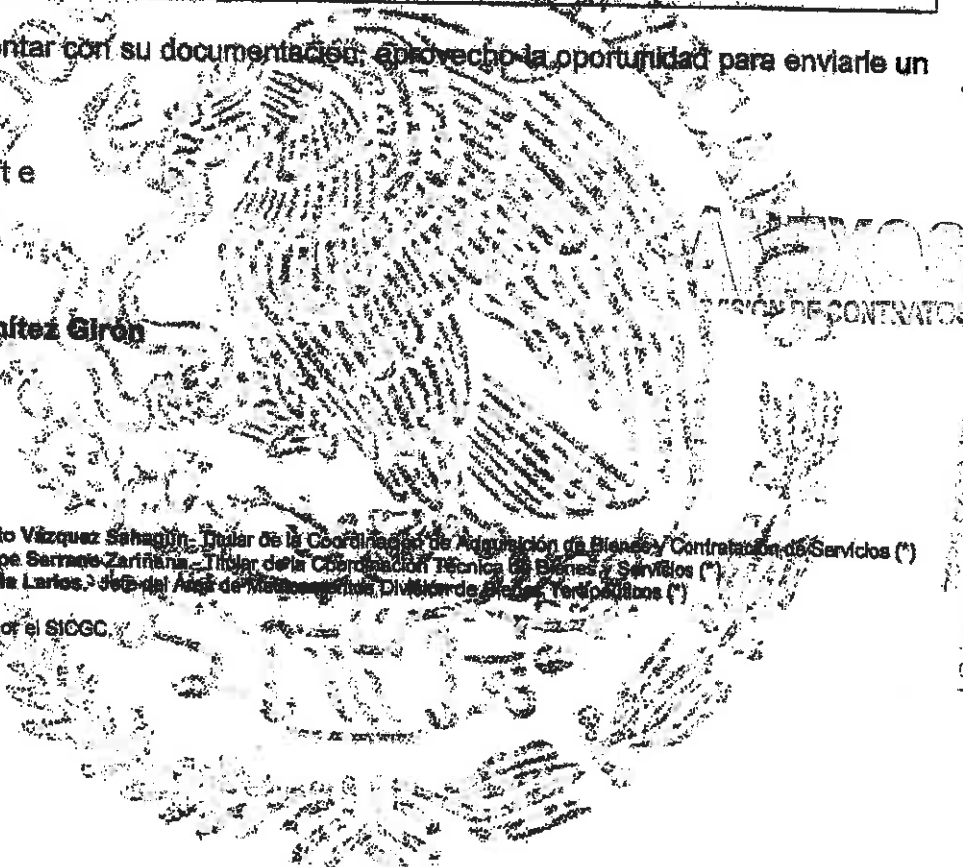 ntar con su documentación, aprovecho la oportunidad para enviarle un
t e
nítez Girón
ANEXOS
DIVISIÓN DE CONTRATOS
to Vázquez Sahagún- Titular de la Coordinación de Adquisición de Bienes y Contratación de Servicios (*)
pe Serrano Zariñana.- Titular de la Coordinación Técnica de Bienes y Servicios (*)
la Larios.- Jefe del Área de Medicamentos División de Bienes Terapéuticos (*)
or el SICGC.